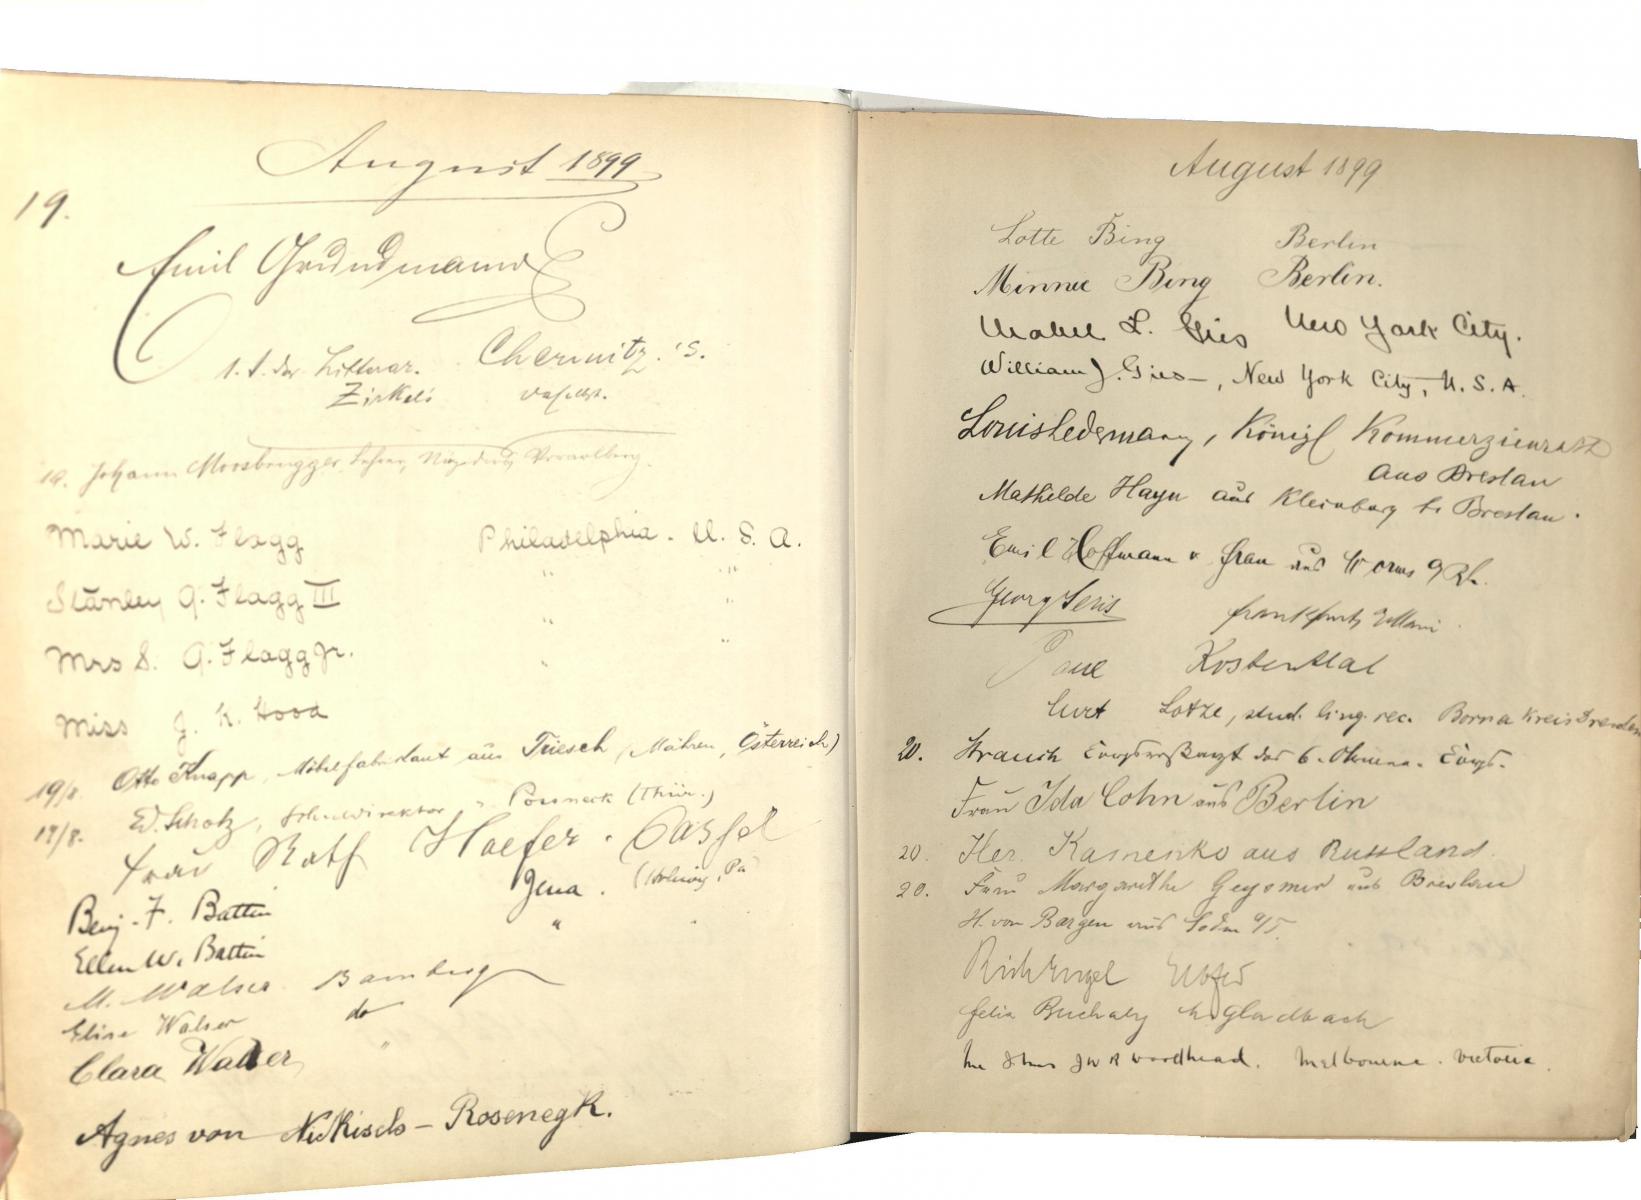 August 1899
19.
Emil Grundmann
Chemnitz. S.
Zirkels daselbst.
19. Johann Moosbrugger, Lehrer, Vorarlberg.
Marie W. Flagg Philadelphia. U. S. A.
Stanley G. Flagg III " "
Mrs S. G. Flagg Jr. " "
Miss J. K. Hood " "
19/8. Otto Knapp, Möbelfabrikant aus Triesch (Mähren, Österreich)
19/8. E. Scholz, Schuldirektor, Pössneck (Thür.)
Frau Rath Hoefer. Cassel
Benj. F. Battin Jena.
Ellen W. Battin "
M. Walser Bamberg
Elise Walser do
Clara Walser "
Agnes von Nickisch-Rosenegk.
August 1899
Lotte Bing Berlin
Minnie Bing Berlin.
Mabel L. Gies New York City.
William J. Gies—, New York City, U. S. A.
Louis Ledermann, Königl Kommerzienrath
aus Breslau
Mathilde Hayn aus Kleinburg b. Breslau.
Emil Hoffmann u Frau aus Worms a/Rh.
Georg Seris Frankfurt a/Main
Paul Kostenthal
Curt Lotze, stud. ling. rec. Borna Kreis Dresden
20. Strauch
Frau Ida Cohn aus Berlin
20. Her. Kamenko aus Russland.
20. Frau Margarethe aus Breslau
H. von Bargen aus
Rich Engel
Felix Buchaly M Gladbach
Mr & Mrs J W R Woodhead. Melbourne. Victoria.